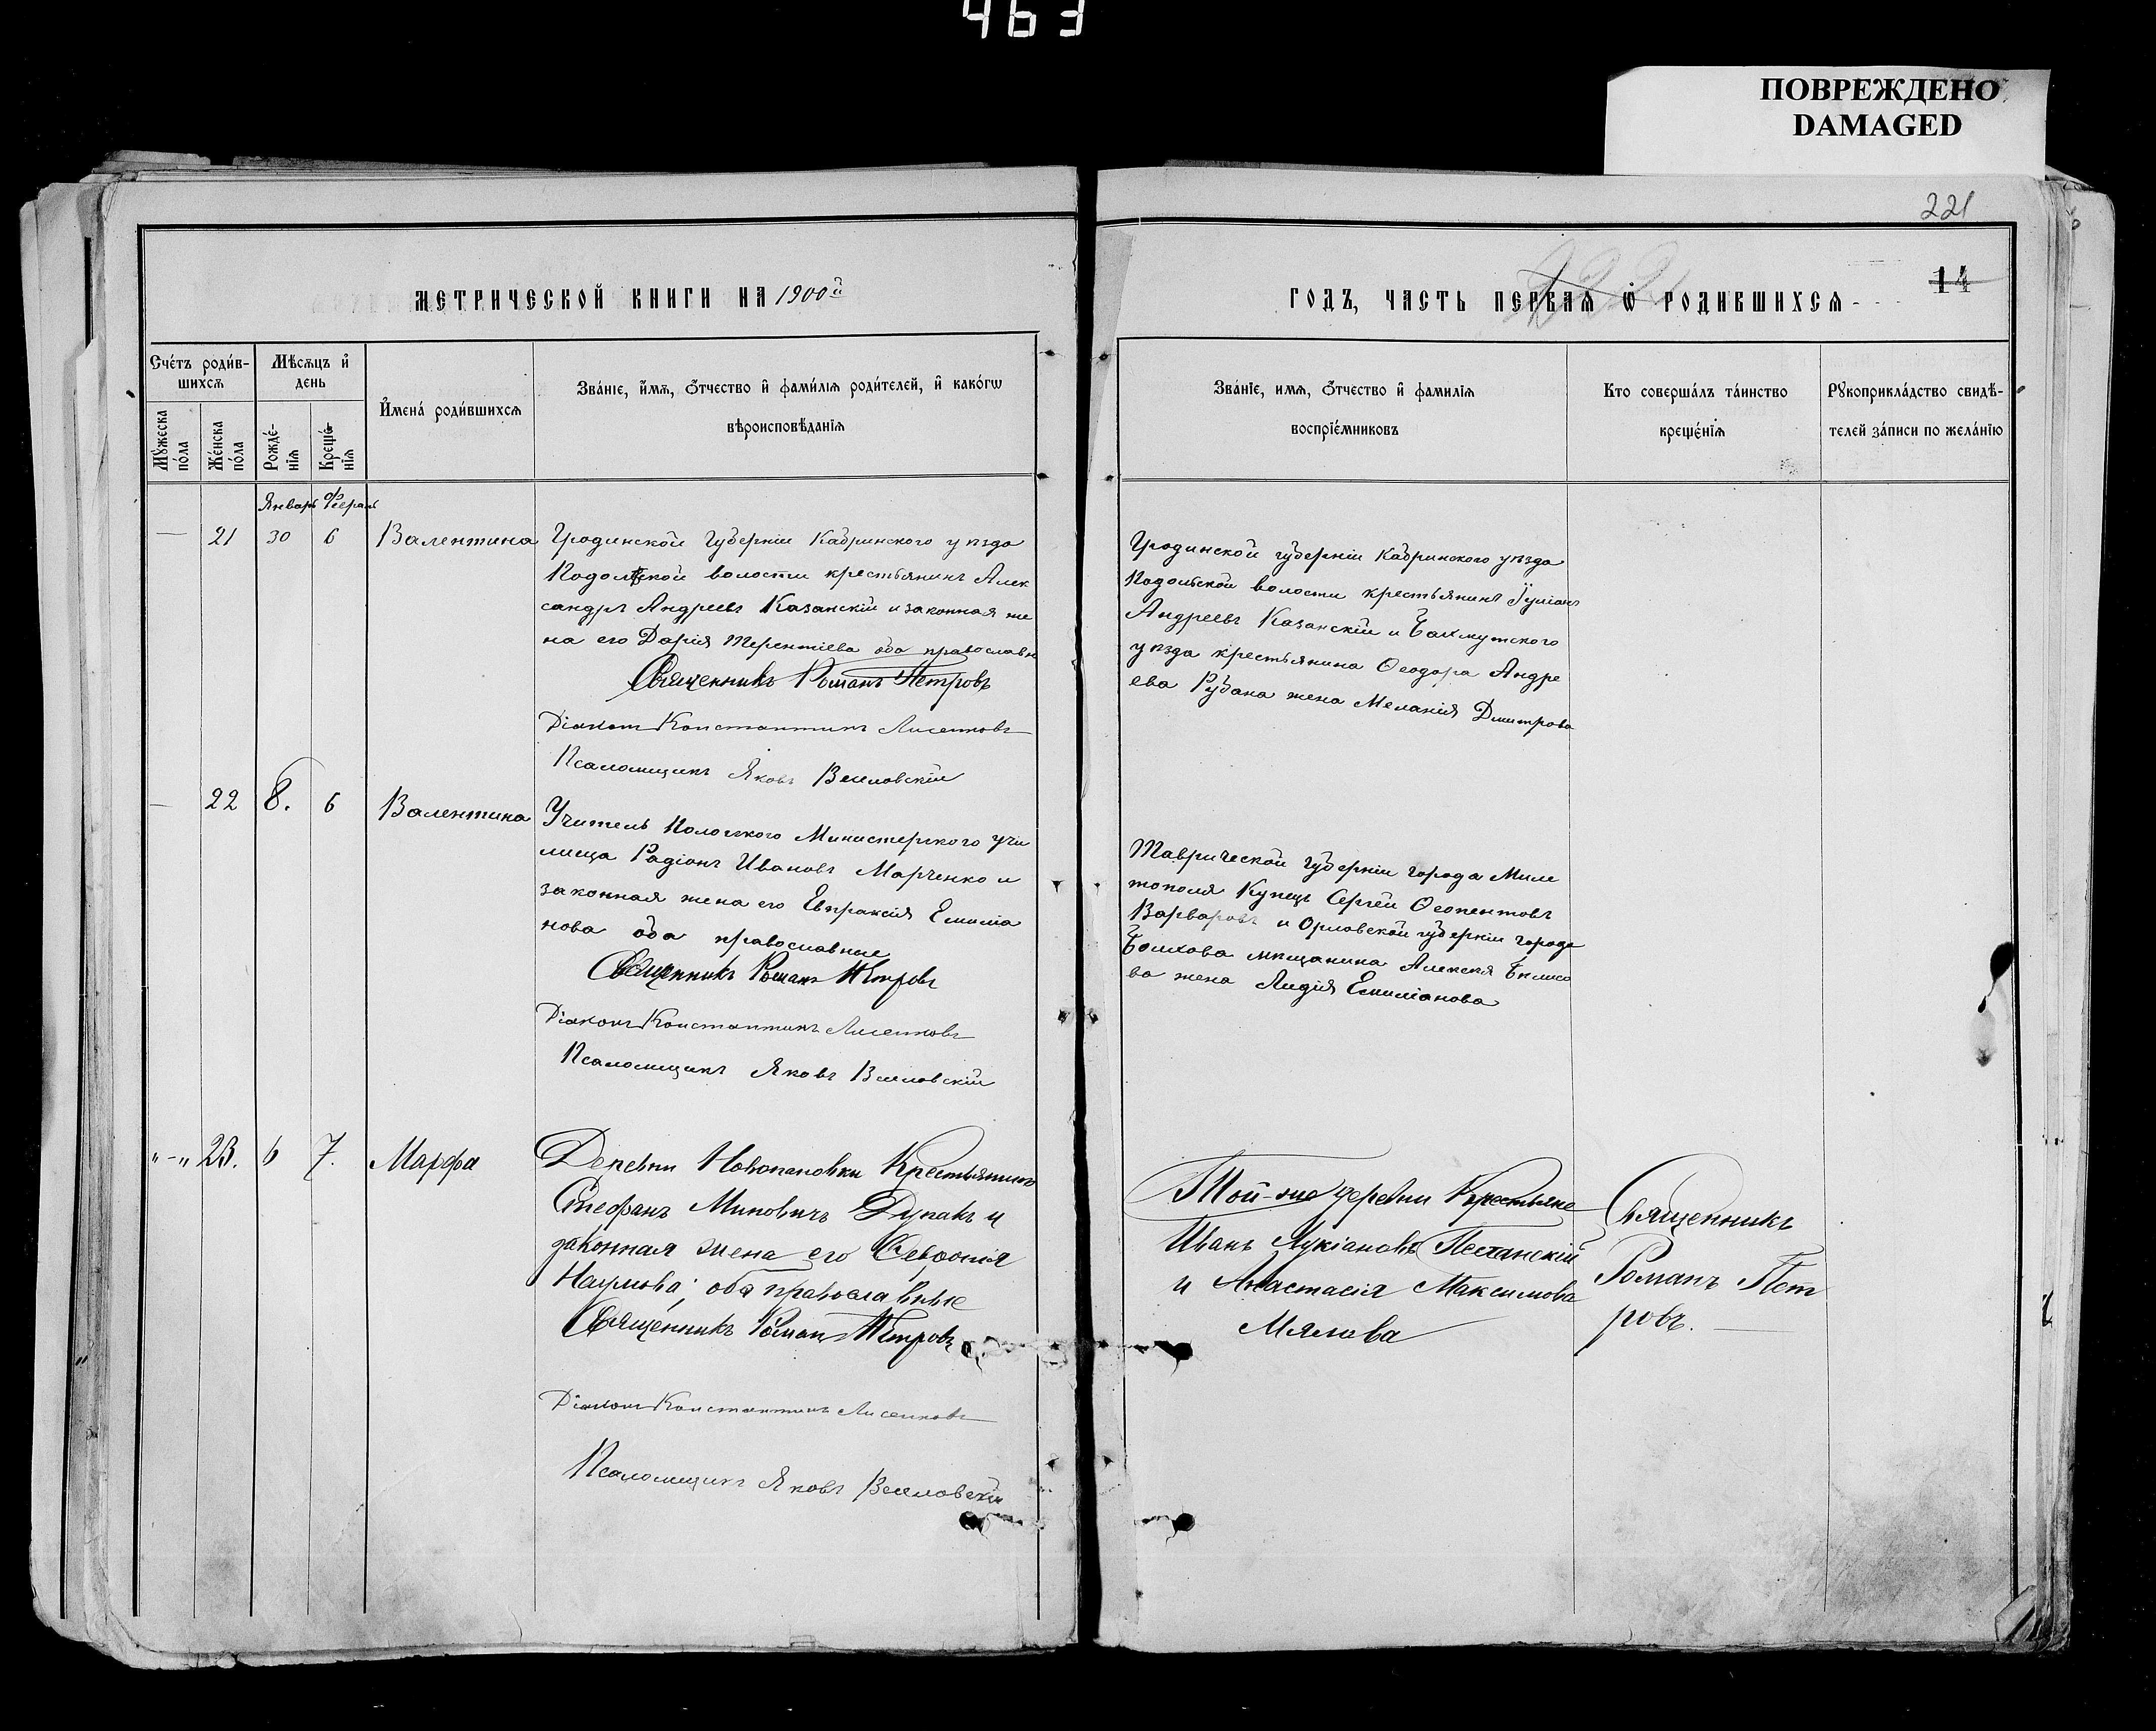 463
ПОВРЕЖДЕНО
DAMAGED
221
14
МЕТРИЧЕСКОЙ КНИГИ НА 1900й
ГОДЪ, ЧАСТЬ ПЕРВАѦ Ѽ РОДИВШИХСѦ
Счéтъ роди́в-
шихсѧ
Мѣсѧцъ и҆
день
Мꙋжеска
по́ла
Же́нска
по́ла
Рожде́-
нїѧ
Креще́-
нїѧ
И҆мена́ роди́вшихсѧ
Зва́нїе, и҆́мѧ, ѻ҆́тчество и҆ фами́лїѧ роди́телей, и҆ како́гѡ
вѣроисповѣ́данїѧ
Зва́нїе, имѧ, ѻ҆́тчество и҆ фамилїѧ
воспрїе́мниковъ
Кто соверша́лъ та́инство
креще́нїѧ
Рꙋкоприкла́дство свидѣ́-
телей за́писи по жела́нїю
Январь
— 21 30 6 Валентина
Гродинской Губерніи Кабринского уѣзда
волости крестьянинъ Алек
сандръ Андреевъ Казанскій и законная же
на его Дарія Терентіева оба православн
Священникъ Романъ Петровъ
Діаконъ Константинъ
Псаломщикъ Яковъ Веселовскій
Гродинской губерніи Кабринского уѣзда
Подольской волости крестьянинъ Іуліанъ
Андреевъ Казанскій и Бахмутского
уѣзда крестьянина Ѳеодора Андре
ева Рубана жена Меланія Дмитрова
— 22 8. 6 Валентина
Учитель Пологского Министерского учи
лища Радіонъ Ивановъ Марченко и
законная жена его Евпраксія Емиліа
нова оба православные
Священникъ Романъ Петровъ
Діаконъ Константинъ
Псаломщикъ Яковъ Веселовскій
Таврической губерніи города Миле
тополя Купецъ Сергей
Варваровъ и Орловской губерніи города
Болхова мѣщанина Алексея
ва жена Лидія Емиліанова
„-„ 23. 6 7. Марфа
Деревни Новопановки Крестьянинъ
Стефанъ Миновичъ Дупакъ и
законная жена его Ѳевронія
Наумова; оба православные
Священникъ Романъ Петровъ
Діаконъ Константинъ
Псаломщикъ Яковъ Веселовскій
Той-же деревни Крестьяне
Иванъ Лукіановъ
и Анастасія Максимова
Священникъ
Романъ Пет
ровъ.